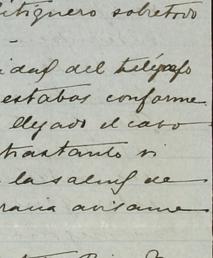 litiguero sobretodo
idad del telégrafo
estabas conforme
llegado el cabo
trastando si
la salud de
gracia avisame